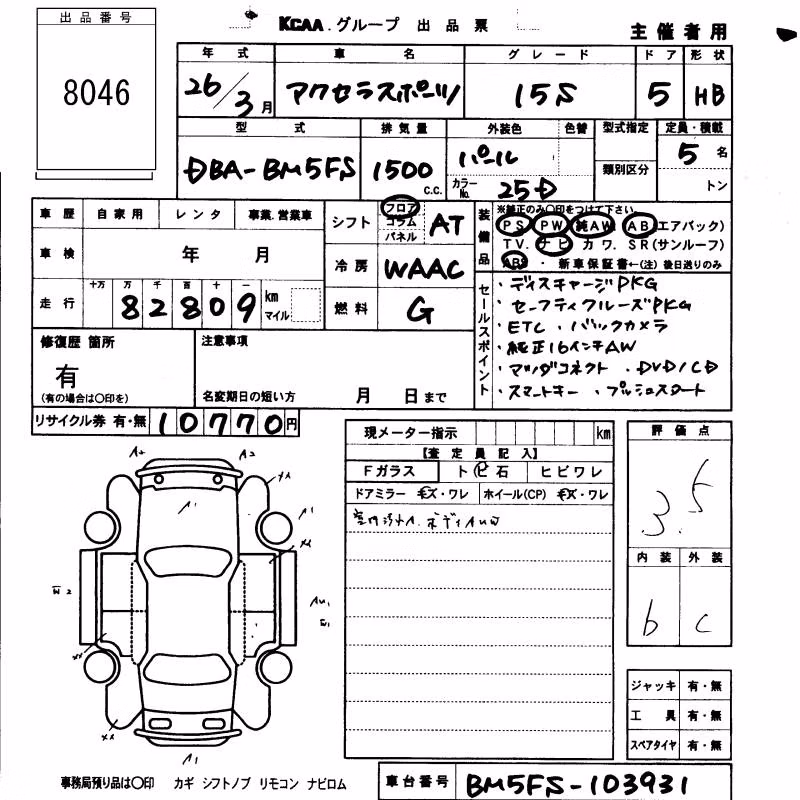 出品番号
8046
KCAA.グループ 出品票
主催者用
年式 車名 グレード ドア 形状
26/3月 アクセラスポーツ 15S 5 HB
型式 排気量 外装色 色替 型式指定 定員・積載
DBA-BM5FS 1500 c.c. パール 類別区分 5名
カラーNo. 25D トン
車歴 自家用 レンタ 事業.営業車
シフト フロア コラム パネル AT
装備品 ※純正のみ〇印をつけて下さい
PS PW 純AW AB(エアバック)
TV. ナビ カワ. SR(サンルーフ)
ABS ・ 新車保証書←(注) 後日送りのみ
車検 年 月
冷房 WAAC
走行 十万 万 千 百 十 一
82809 km マイル
燃料 G
セールスポイント
・ディスチャージPKG
・セーフティクルーズPKG
・ETC ・バックカメラ
・純正16インチAW
・マツダコネクト ・DVD/CD
・スマートキー ・プッシュスタート
修復歴 箇所
有
(有の場合は〇印を)
注意事項
名変期日の短い方 月 日まで
リサイクル券 有・無 10770円
現メーター指示 km
【査定員記入】
Fガラス トビ石 ヒビワレ
ドアミラー キズ・ワレ ホイール(CP) キズ・ワレ
評価点
3.5
内装 外装
b c
A2 A2
XX
A1 A1
XX
W2
AU1
W1
XX
XX
A1
ジャッキ 有・無
工具 有・無
スペアタイヤ 有・無
事務局預り品は〇印 カギ シフトノブ リモコン ナビロム
車台番号 BM5FS-103931